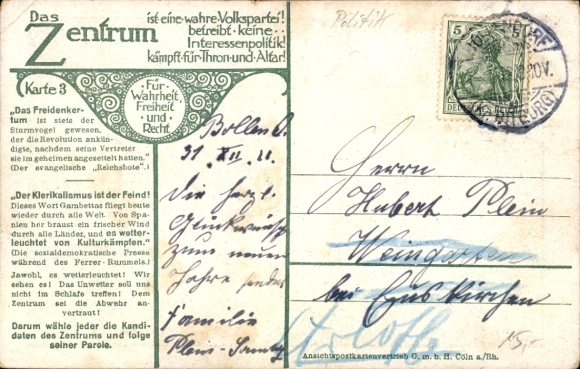 Das Zentrum
ist eine wahre Volkspartei!
betreibt keine
Interessenpolitik!
kämpft für Thron und Altar!
Karte 3
Für
Wahrheit,
Freiheit
und
Recht
„Das Freidenker-
tum ist stets der
Sturmvogel gewesen,
der die Revolution ankün-
digte, nachdem seine Vertreter
sie im geheimen angezettelt hatten.“
(Der evangelische „Reichsbote“.)
„Der Klerikalismus ist der Feind!
Dieses Wort Gambettas fliegt heute
wieder durch alle Welt. Von Spa-
nien her braust ein frischer Wind
durch alle Länder, und es wetter-
leuchtet von Kulturkämpfen.“
(Die sozialdemokratische Presse
während des Ferrer-Rummels.)
Jawohl, es wetterleuchtet! Wir
sehen es! Das Unwetter soll uns
nicht im Schlafe treffen! Dem
Zentrum sei die Abwehr an-
vertraut!
Darum wähle jeder die Kandi-
daten des Zentrums und folge
seiner Parole.
31. XII. 11.
Die herzl.
Glückwünsche
zum neuen
Jahre sendet
Familie
Politik
5
Herrn
Hubert Plein
Weingarten
bei Euskirchen
15,-
Ansichtspostkartenvertrieb G. m. b. H. Cöln a./Rh.